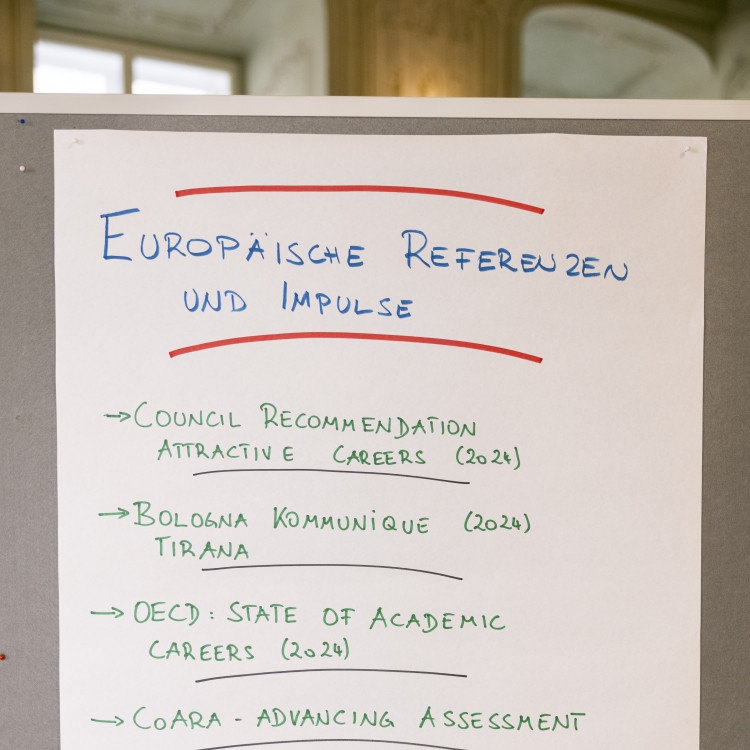 EUROPÄISCHE REFERENZEN
UND IMPULSE
→ COUNCIL RECOMMENDATION
ATTRACTIVE CAREERS (2024)
→ BOLOGNA KOMMUNIQUE (2024)
TIRANA
→ OECD: STATE OF ACADEMIC
CAREERS (2024)
→ COARA - ADVANCING ASSESSMENT